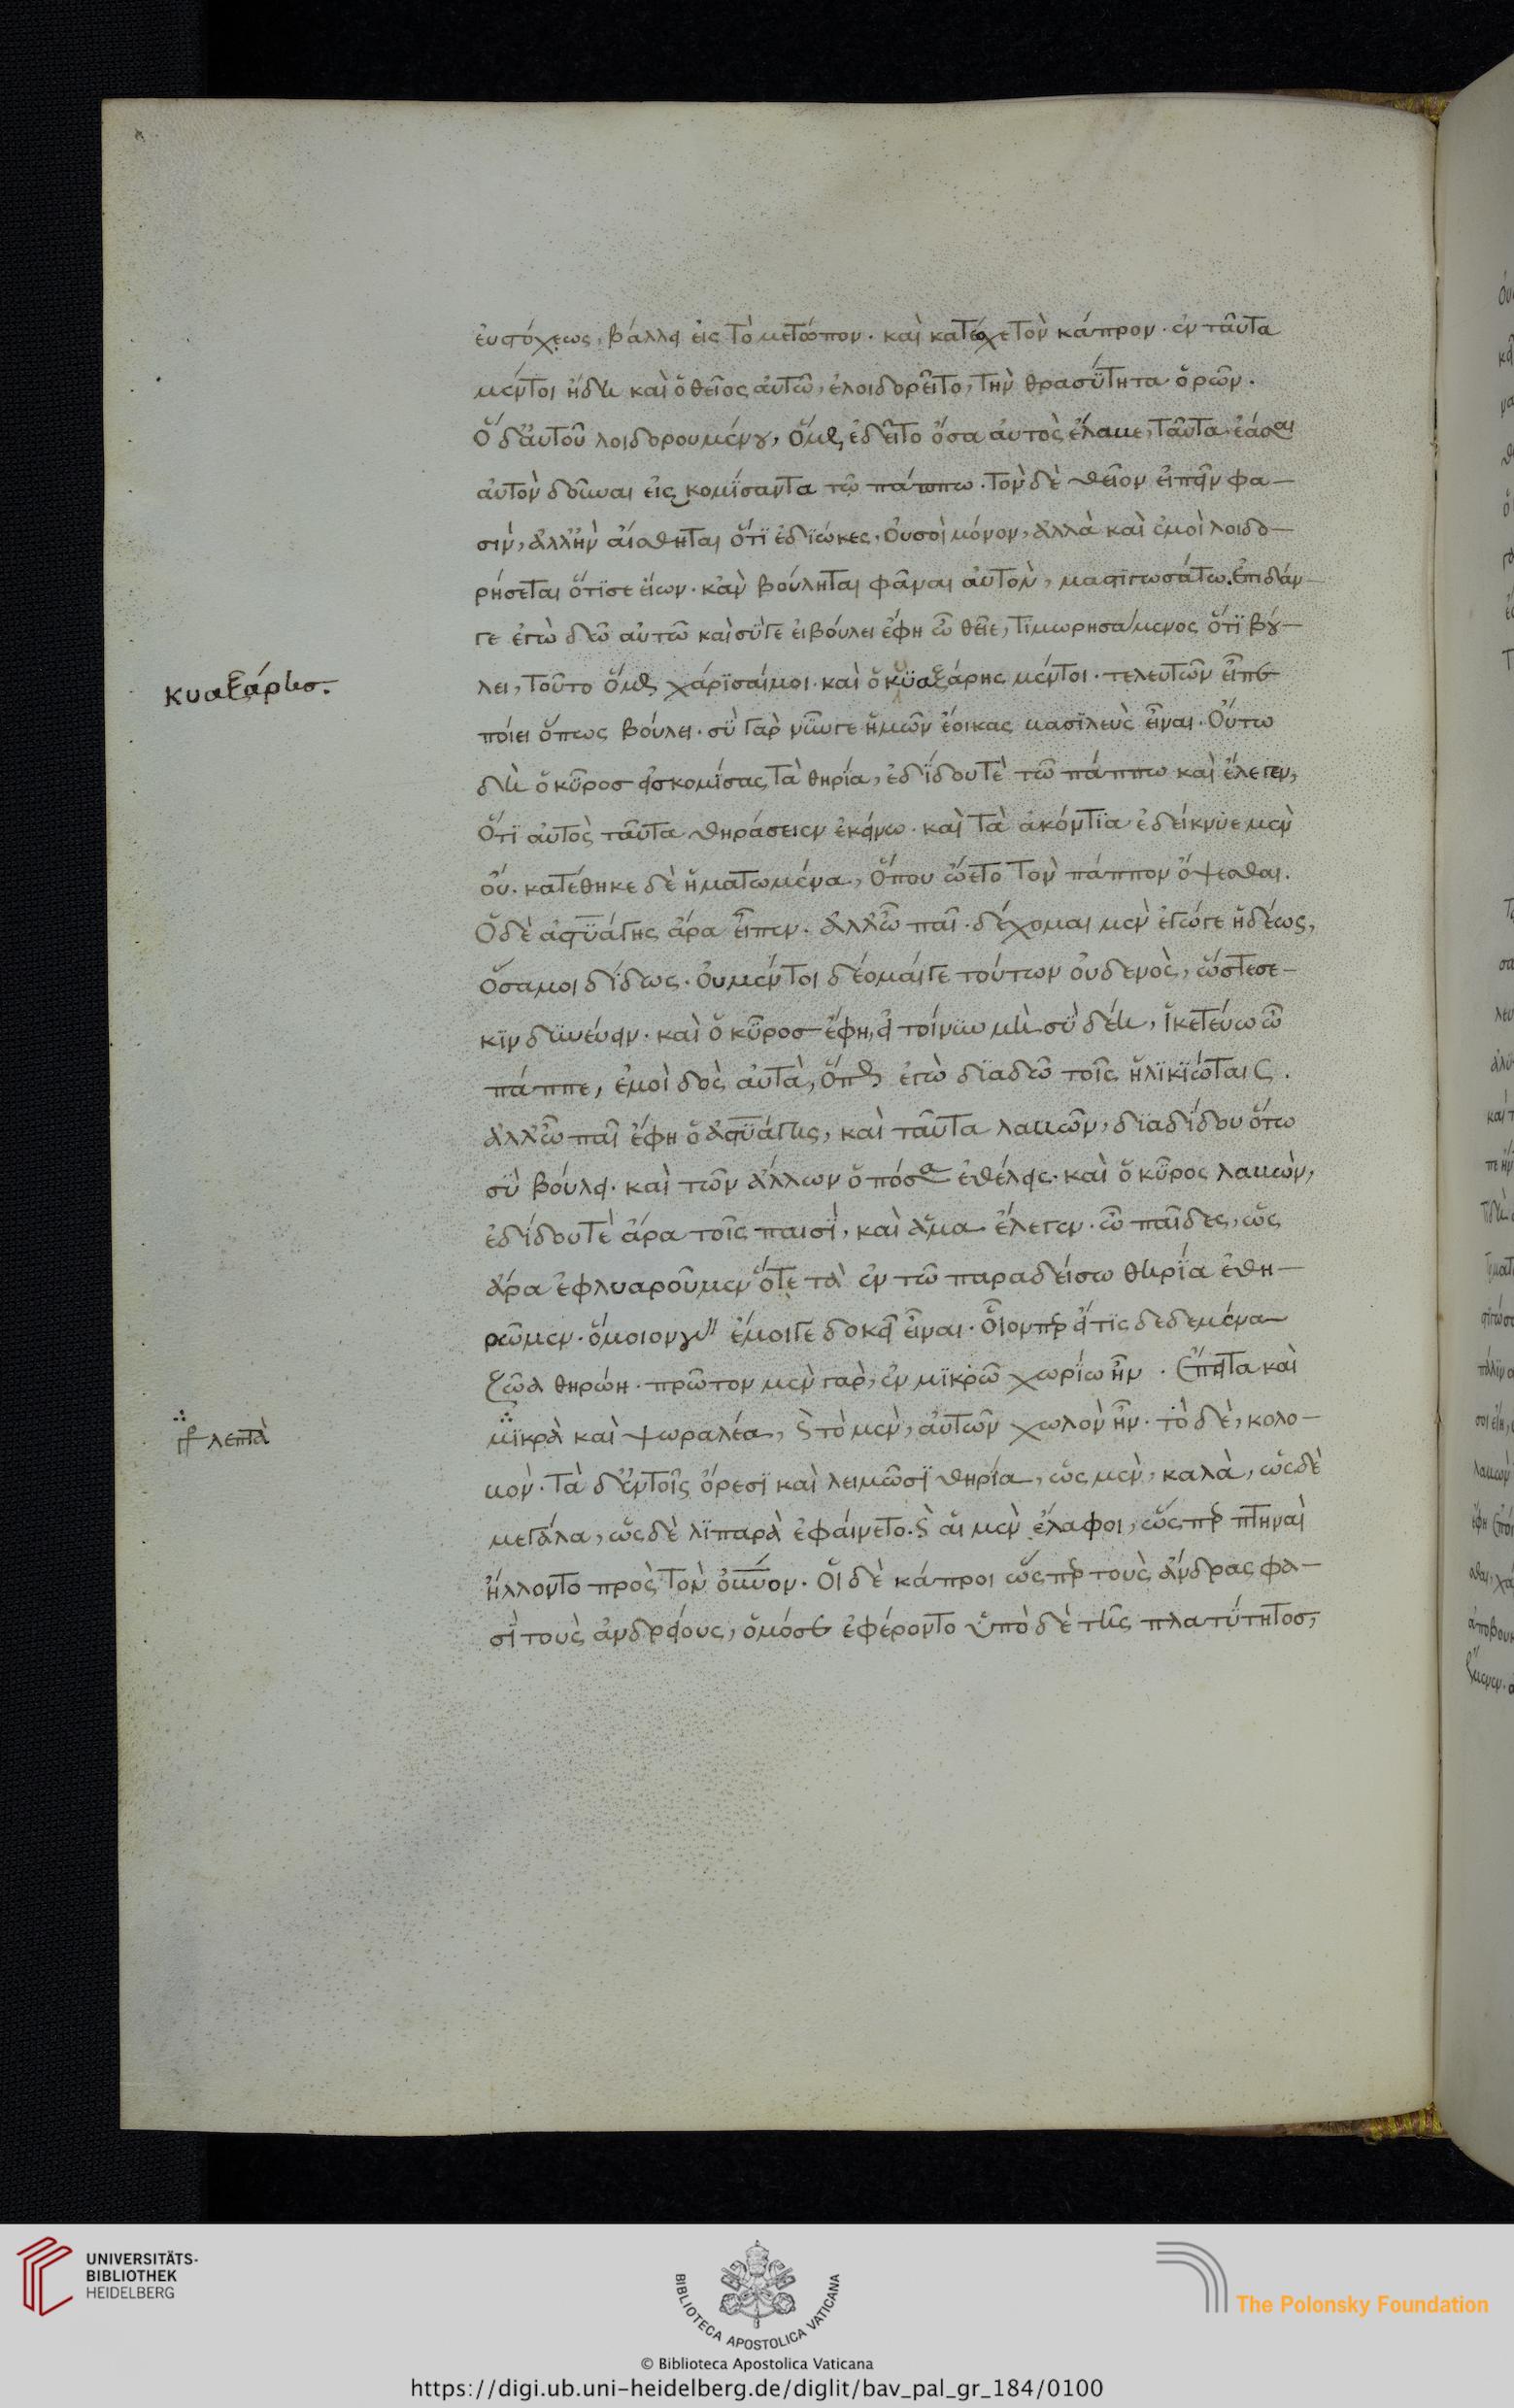 εὐστόχως, βάλλει εἰς τὸ μέτωπον. καὶ κατέσχε τὸν κάπρον. ἐνταῦθα
μέντοι ἤδη καὶ ὁ θεῖος αὐτῶ, ἐλοιδορεῖτο, τὴν θρασύτητα ὁρῶν.
Ὁ δ' αὐτοῦ λοιδορουμένου, ὅμως ἐδεῖτο ὅσα αὐτὸς ἔλαβε, ταῦτα ἐάσαι
αὐτὸν δοῦναι εἰς κομίσαντα τῶ πάππω. τὸν δὲ θεῖον εἰπεῖν φα-
σὶν, ἀλλ' ἢν αἴσθηται ὅτι ἐδίωκες, οὐ σοὶ μόνον, ἀλλὰ καὶ ἐμοὶ λοιδο-
ρήσεται ὅτι σε εἴων. κἂν βούληται φάναι αὐτὸν, μαστιγωσάτω. ἐπειδάν
γε ἐγὼ δῶ αὐτῶ καὶ σύ γε εἰ βούλει ἔφη ὦ θεῖε, τιμωρησάμενος ὅτι βού-
λει, τοῦτο ὅμως χάρισαί μοι. καὶ ὁ κυαξάρης μέντοι. τελευτῶν εἶπε
κυαξάρης.
ποίει ὅπως βούλει. σὺ γὰρ νῦν γε ἡμῶν ἔοικας βασιλεὺς εἶναι. Οὕτω
δὴ ὁ κῦρος εἰσκομίσας τὰ θηρία, ἐδίδου τὲ τῶ πάππω καὶ ἔλεγεν,
ὅτι αὐτὸς ταῦτα θηράσειεν ἐκείνω. καὶ τὰ ἀκόντια ἐδείκνυε μὲν
οὔ. κατέθηκε δὲ ἡματωμένα, ὅπου ὤετο τὸν πάππον ὄψεσθαι.
Ὁ δὲ ἀστυάγης ἄρα εἶπεν. ἀλλ' ὦ παῖ. δέχομαι μὲν ἔγωγε ἡδέως,
ὅσα μοι δίδως. οὐ μέντοι δέομαί γε τούτων οὐδενὸς, ὥστε σε
κινδυνεύειν. καὶ ὁ κῦρος ἔφη, εἰ τοίνυν μὴ σὺ δέη, ἱκετεύω ὦ
πάππε, ἐμοὶ δὸς αὐτὰ, ὅπως ἐγὼ διαδῶ τοῖς ἡλικιώταις.
ἀλλ' ὦ παῖ ἔφη ὁ ἀστυάγης, καὶ ταῦτα λαβὼν, διαδίδου ὅτω
σὺ βούλει. καὶ τῶν ἄλλων ὁπόσα ἐθέλεις. καὶ ὁ κῦρος λαβὼν,
ἐδίδου τὲ ἄρα τοῖς παισὶ, καὶ ἅμα ἔλεγεν. ὦ παῖδες, ὡς
ἄρα ἐφλυαροῦμεν ὅτε τὰ ἐν τῶ παραδείσω θηρία ἐθη-
ρῶμεν. ὅμοιον ἔμοιγε δοκεῖ εἶναι. οἷον περ εἴ τις δεδεμένα
ζῶα θηρώη. πρῶτον μὲν γὰρ, ἐν μικρῶ χωρίω ἦν. ἔπειτα καὶ
μικρὰ καὶ ψωραλέα, καὶ τὸ μὲν, αὐτῶν χωλὸν ἦν. τὸ δὲ, κολο-
λεπτὰ
βόν. τὰ δ' ἐν τοῖς ὄρεσι καὶ λειμῶσι θηρία, ὡς μὲν, καλὰ, ὡς δὲ
μεγάλα, ὡς δὲ λιπαρὰ ἐφαίνετο. καὶ αἱ μὲν ἔλαφοι, ὥσπερ πτηναὶ
ἥλλοντο πρὸς τὸν οὐνόν. οἱ δὲ κάπροι ὥσπερ τοὺς ἄνδρας φα-
σὶ τοὺς ἀνδρείους, ὁμόσε ἐφέροντο ὑπὸ δὲ τῆς πλατύτητος,
UNIVERSITÄTS-
BIBLIOTHEK
HEIDELBERG
BIBLIOTECA APOSTOLICA VATICANA
The Polonsky Foundation
© Biblioteca Apostolica Vaticana
https://digi.ub.uni-heidelberg.de/diglit/bav_pal_gr_184/0100